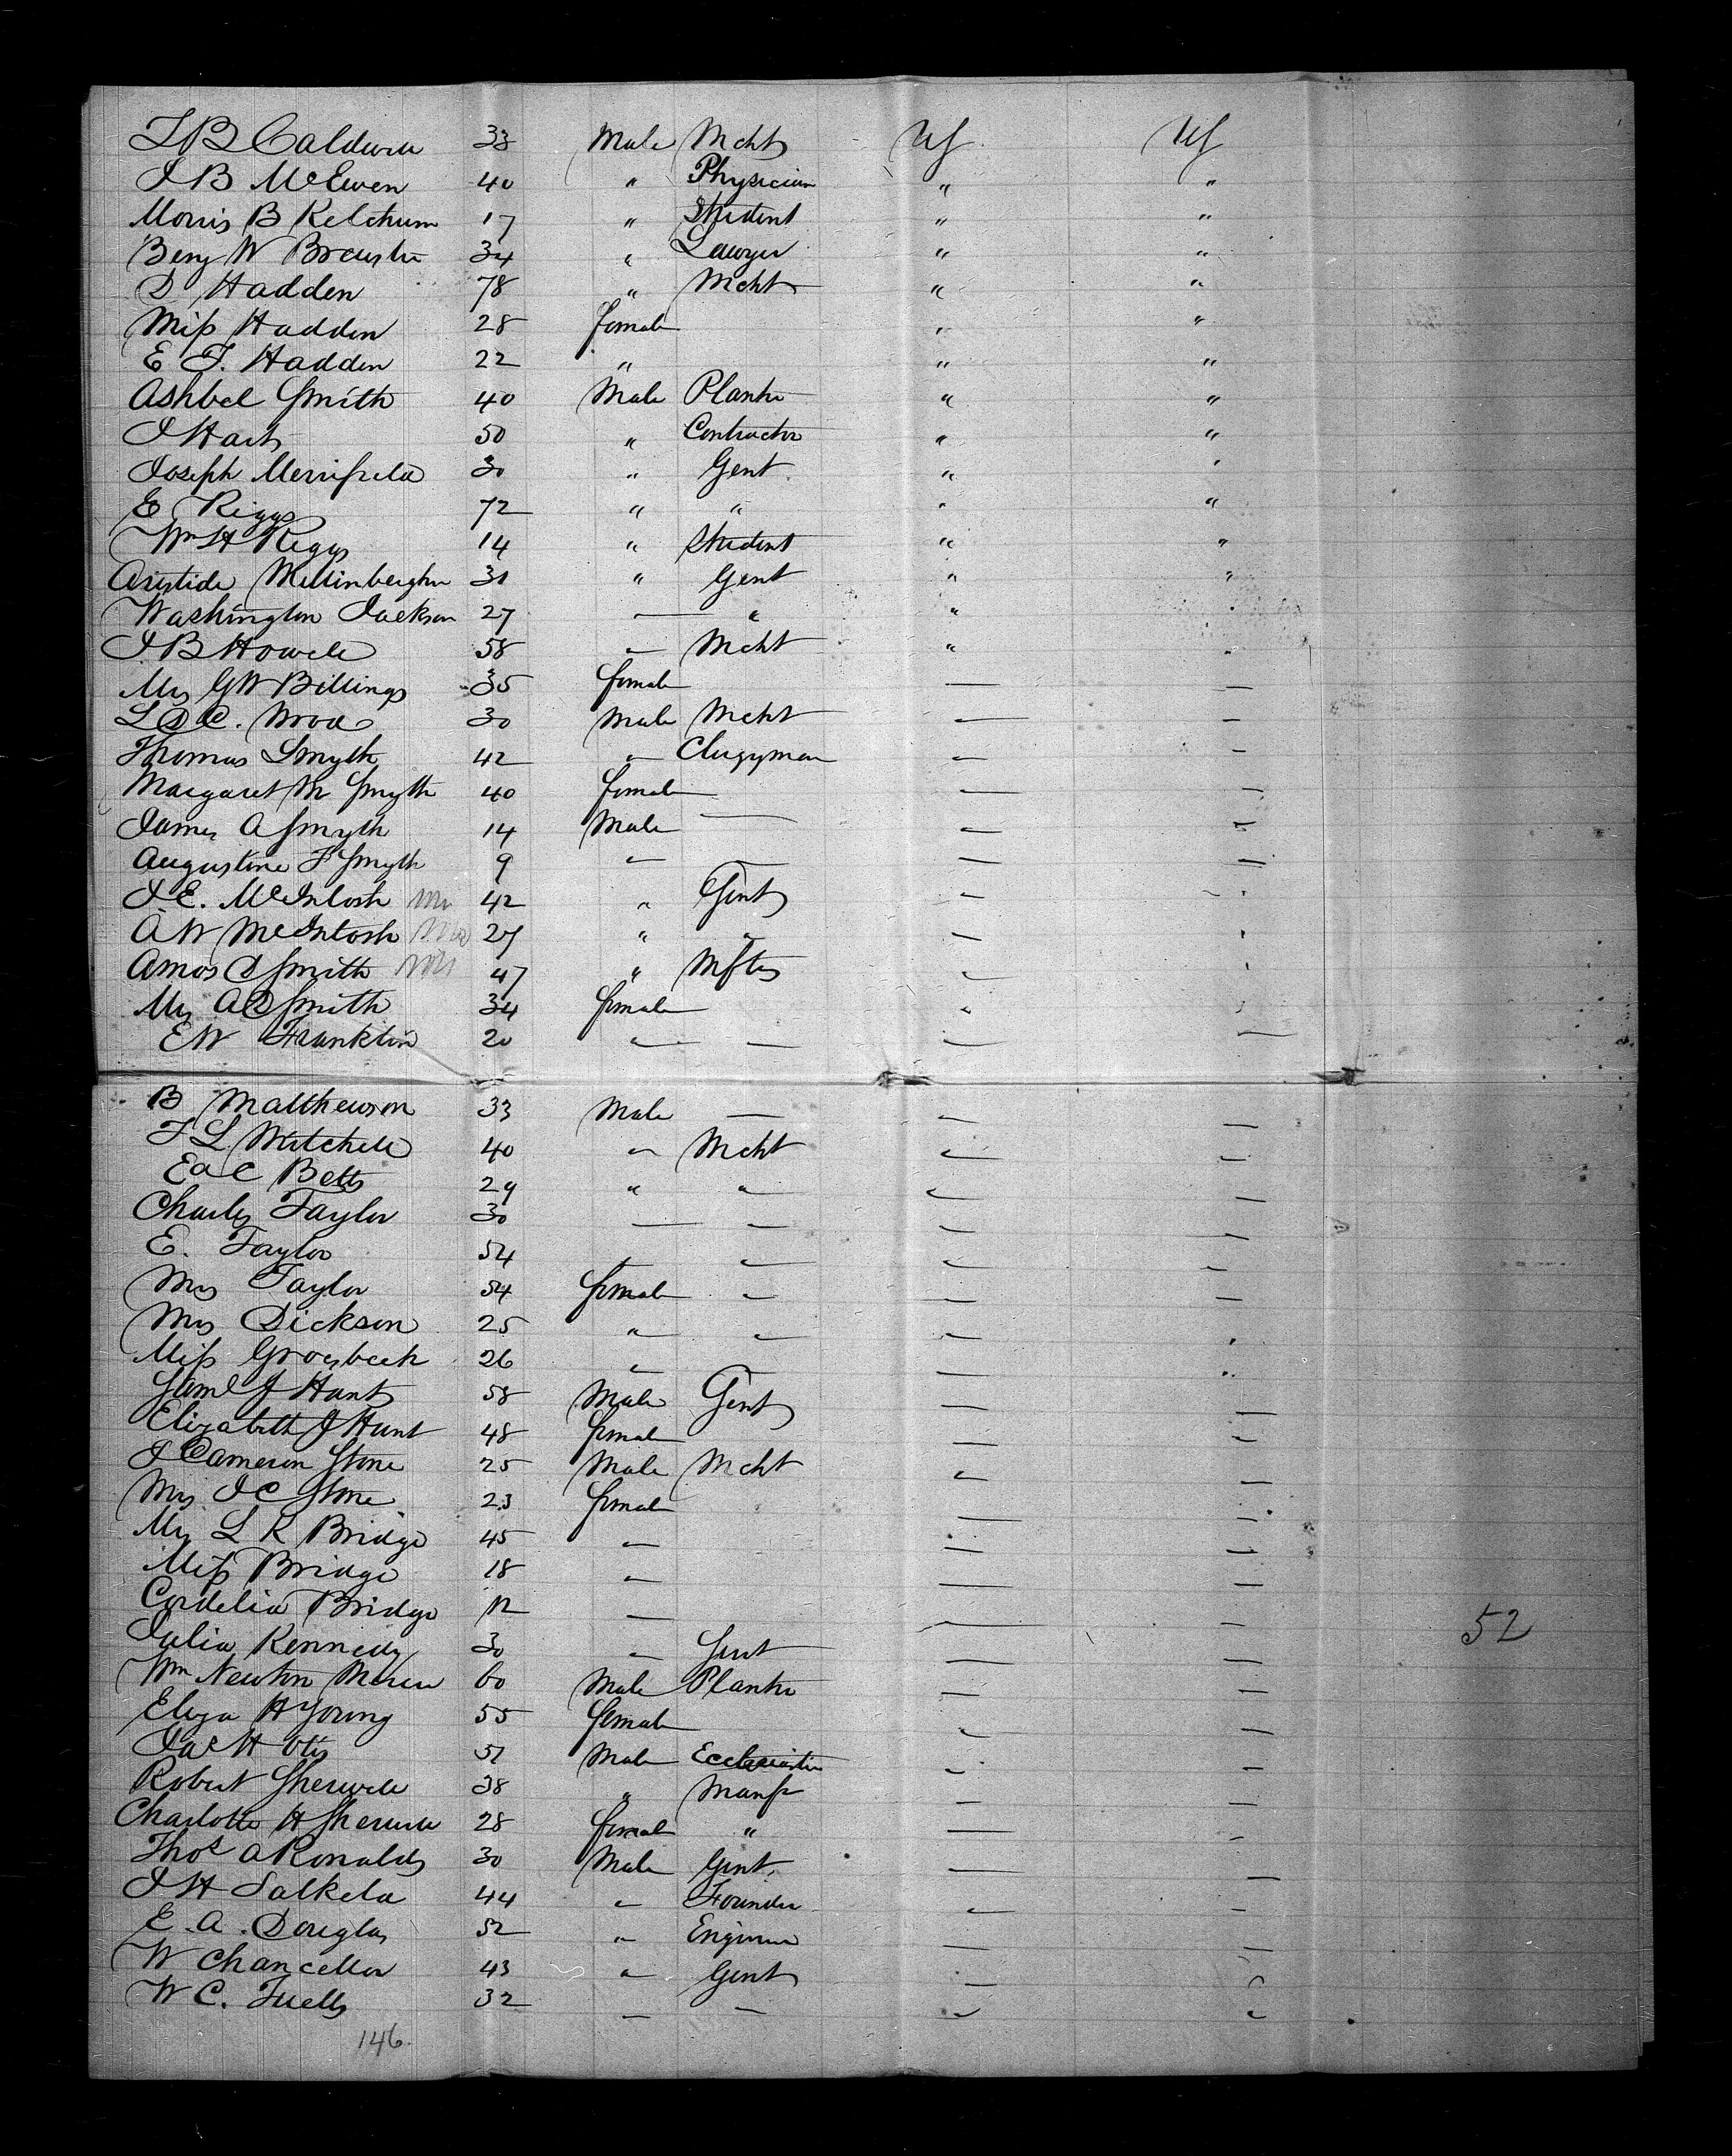 J B Caldwell 33 Male Mcht US US
J B McEwen 40 " Physician " "
Morris B Ketchum 17 " Student " "
Benj W Brewster 34 " Lawyer " "
D Hadden 78 " Mcht " "
Miss Hadden 28 female " "
E F. Hadden 22 " " "
Ashbel Smith 40 Male Planter " "
J Hart 50 " Contractor " "
Joseph Merrifield 30 " Gent " "
E Riggs 72 " " " "
Wm H Riggs 14 " Student " "
Aristide 31 " Gent " "
Washington Jackson 27 — " " "
J. B Howell 58 " Mcht " "
Mrs G W Billings 35 female — —
30 Male Mcht — —
Thomas Smyth 42 " Clergyman — —
Margaret M Smyth 40 female — —
James A Smyth 14 Male — — —
Augustine F Smyth 9 " — — —
J. E. McIntosh 42 " Gent — "
A W McIntosh 27 " " — "
Amos D Smith 47 " — "
Mrs A D Smith 34 female " "
E W Franklin 20 — — — —
B Matthewson 33 Male — — —
F L Mitchell 40 " Mcht — —
E A C Betts 29 " " — —
Charles Taylor 30 — — — —
E. Taylor 54 — — — —
Mrs Taylor 54 female — — —
Mrs Dickson 25 " — — "
Miss Groesbeek 26 " — "
Saml J Hunt 58 Male Gent — —
Elizabeth J Hunt 48 female — —
J Cameron Stone 25 Male Mcht — —
Mrs J C Stone 23 female — —
Mrs L R Bridge 45 — — —
Miss Bridge 18 — — —
Cordelia Bridge 12 — — —
52
Julia Kennedy 30 — Gent — —
Wm Newton Mercer 60 Male Planter — —
Eliza H Young 55 female — —
Jas H Otis Male Ecclesiastic — —
Robert Sherwell 38 " Manfr — —
Charlotte H Sherwell 28 female " — —
Thos A Ronalds 30 Male Gent. — —
J H Salkeld 44 " Founder — —
E. A. Douglas 52 " Engineer — —
W Chancellor 43 " Gent — "
W C. 32 — — — —
146.